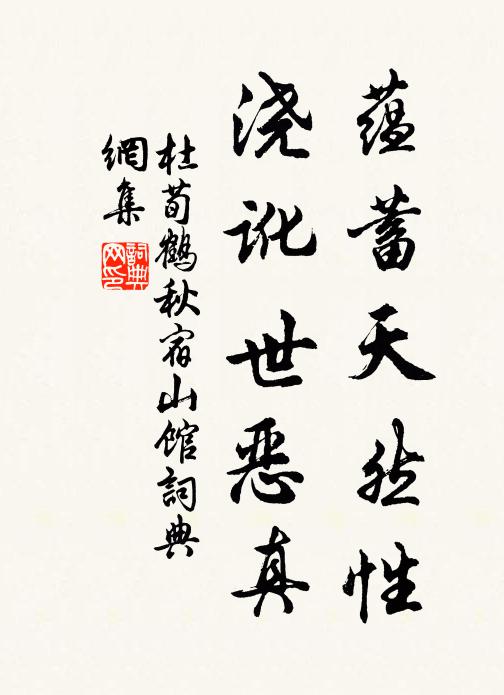 蕴蓄天然性
浇讹世恶真
杜荀鹤秋宿山馆詞典
網集
詞典
网印